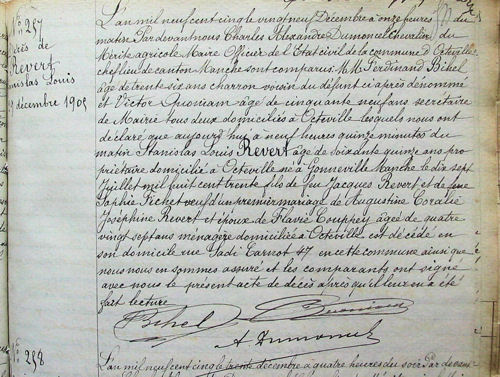 N° 257
Décès de
Revert
Stanislas Louis
29 décembre 1905
L'an mil neuf cent cinq le vingt neuf Décembre à onze heures du
matin Par devant nous Charles Alexandre Dumoncel Chevalier du
Mérite agricole Maire Officier de l'Etat civil de la commune d'Octeville
chef lieu de canton Manche sont comparus. M.M. Ferdinand Bihel
âgé de trente six ans charron voisin du défunt ci après dénommé
et Victor Quoniam âgé de cinquante neuf ans secrétaire
de Mairie tous deux domiciliés à Octeville lesquels nous ont
déclaré que aujourd'hui a neuf heures quinze minutes du
matin Stanislas Louis Revert âgé de soixante quinze ans pro
priétaire domicilié à Octeville né à Gonneville Manche le dix sept
Juillet mil huit cent trente fils de feu Jacques Revert et de feue
Sophie Fichet veuf d'un premier mariage de Augustine Coralie
Joséphine Revert et époux de Flavie Couppey âgée de quatre
vingt sept ans ménagère domiciliée à Octeville est décédé en
son domicile rue Sadi Carnot 47 en cette commune ainsi que
nous nous en sommes assuré et les comparants ont signé
avec nous le présent acte de décès après qu'il leur en a été
fait lecture
Bihel Quoniam
A Dumoncel
N° 258
L'an mil neuf cent cinq le trente décembre à quatre heures du soir Par devant